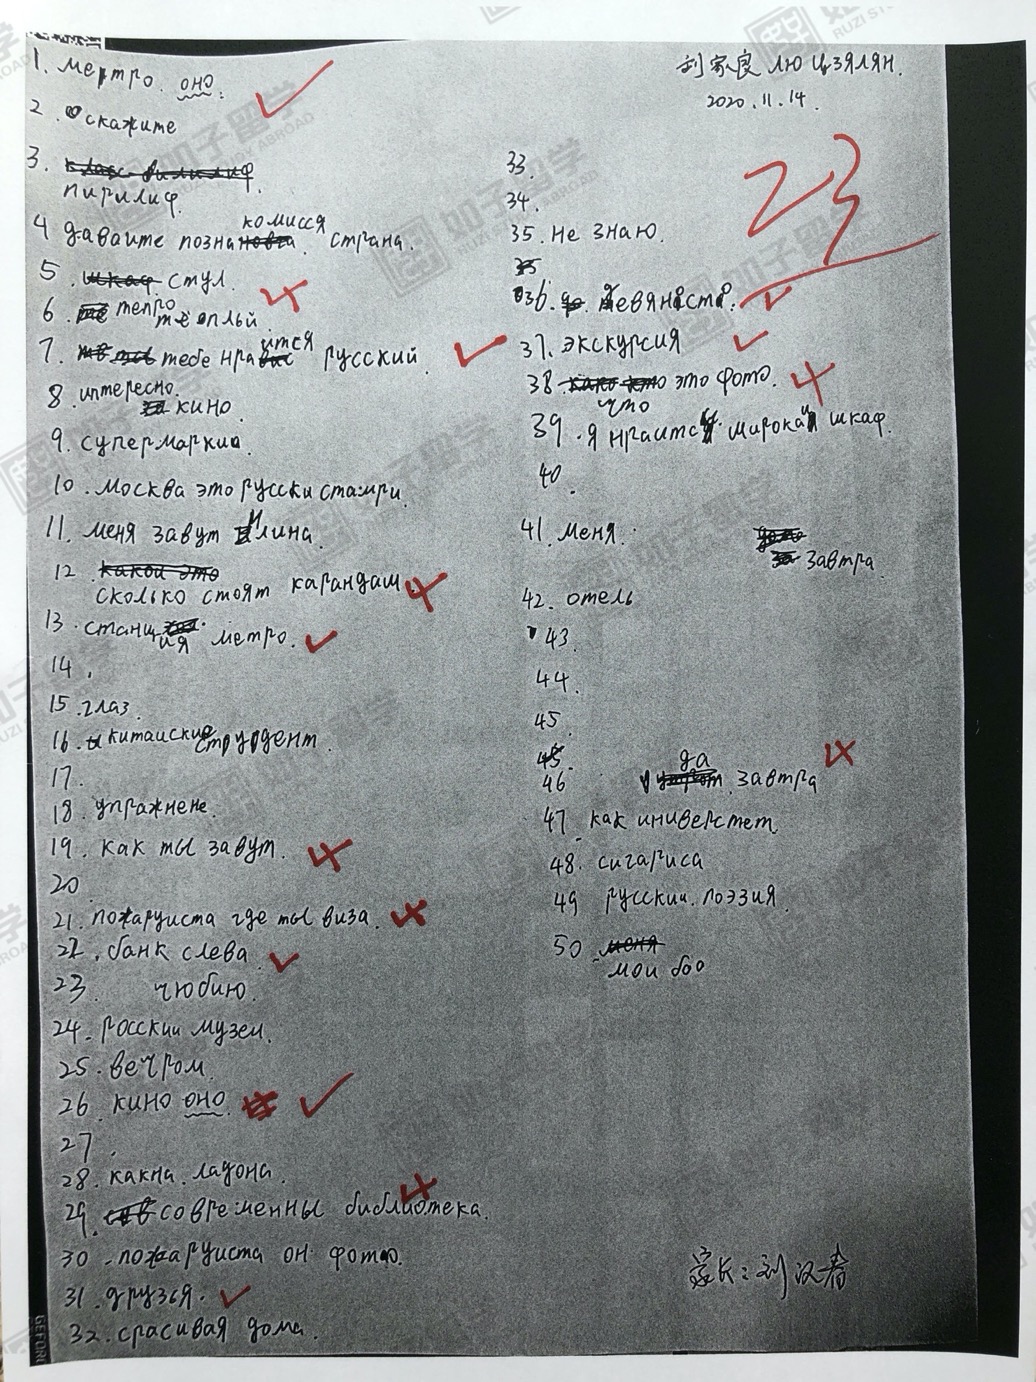 刘家良 ЛЮ ЦЗЯЛЯН.
2020.11.14.
23
1. метро. оно.
2. скажите
3. пирилиф.
4 давайте позна комисся страна.
5. стул.
6. тепро тёплый.
7. тебе нравится русский.
8 интересно. кино.
9. супермаркио.
10. москва это русски стамри
11. меня завут Илина.
12. сколько стоят карандаш.
13. станция метро.
14.
15. глаз.
16. китайские студент.
17.
18. упражнене.
19. как ты завут.
20
21. пожаруиста где ты виза.
22. банк слева.
23. чюбию.
24. росскии музеи.
25. вечром.
26. кино оно.
27.
28. какна. ладона.
29. современны библиотека.
30. пожаруиста он фото.
31. друзья.
32. срасивая дома.
33.
34.
35. не знаю.
36. девяносто.
37. экскурсия
38. что это фото.
39. я нраится широкаи шкаф.
40.
41. меня. завтра.
42. отель
43.
44.
45.
46 да завтра
47. как иниверстет.
48. сигариса
49 русскии. поэзия.
50 мои боо
家长:刘汉春
如子留学
RUZI STUDY ABROAD